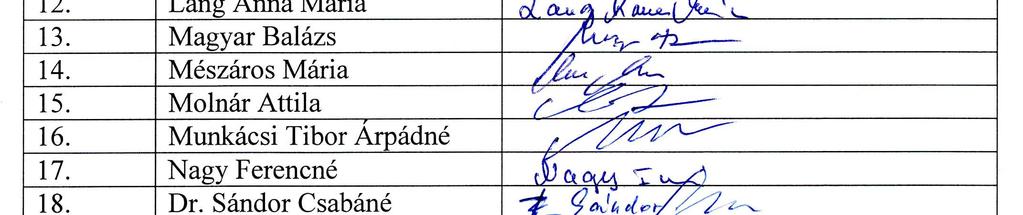 12. Láng Anna Mária
13. Magyar Balázs
14. Mészáros Mária
15. Molnár Attila
16. Munkácsi Tibor Árpádné
17. Nagy Ferencné Nagy
18. Dr. Sándor Csabáné Sándor